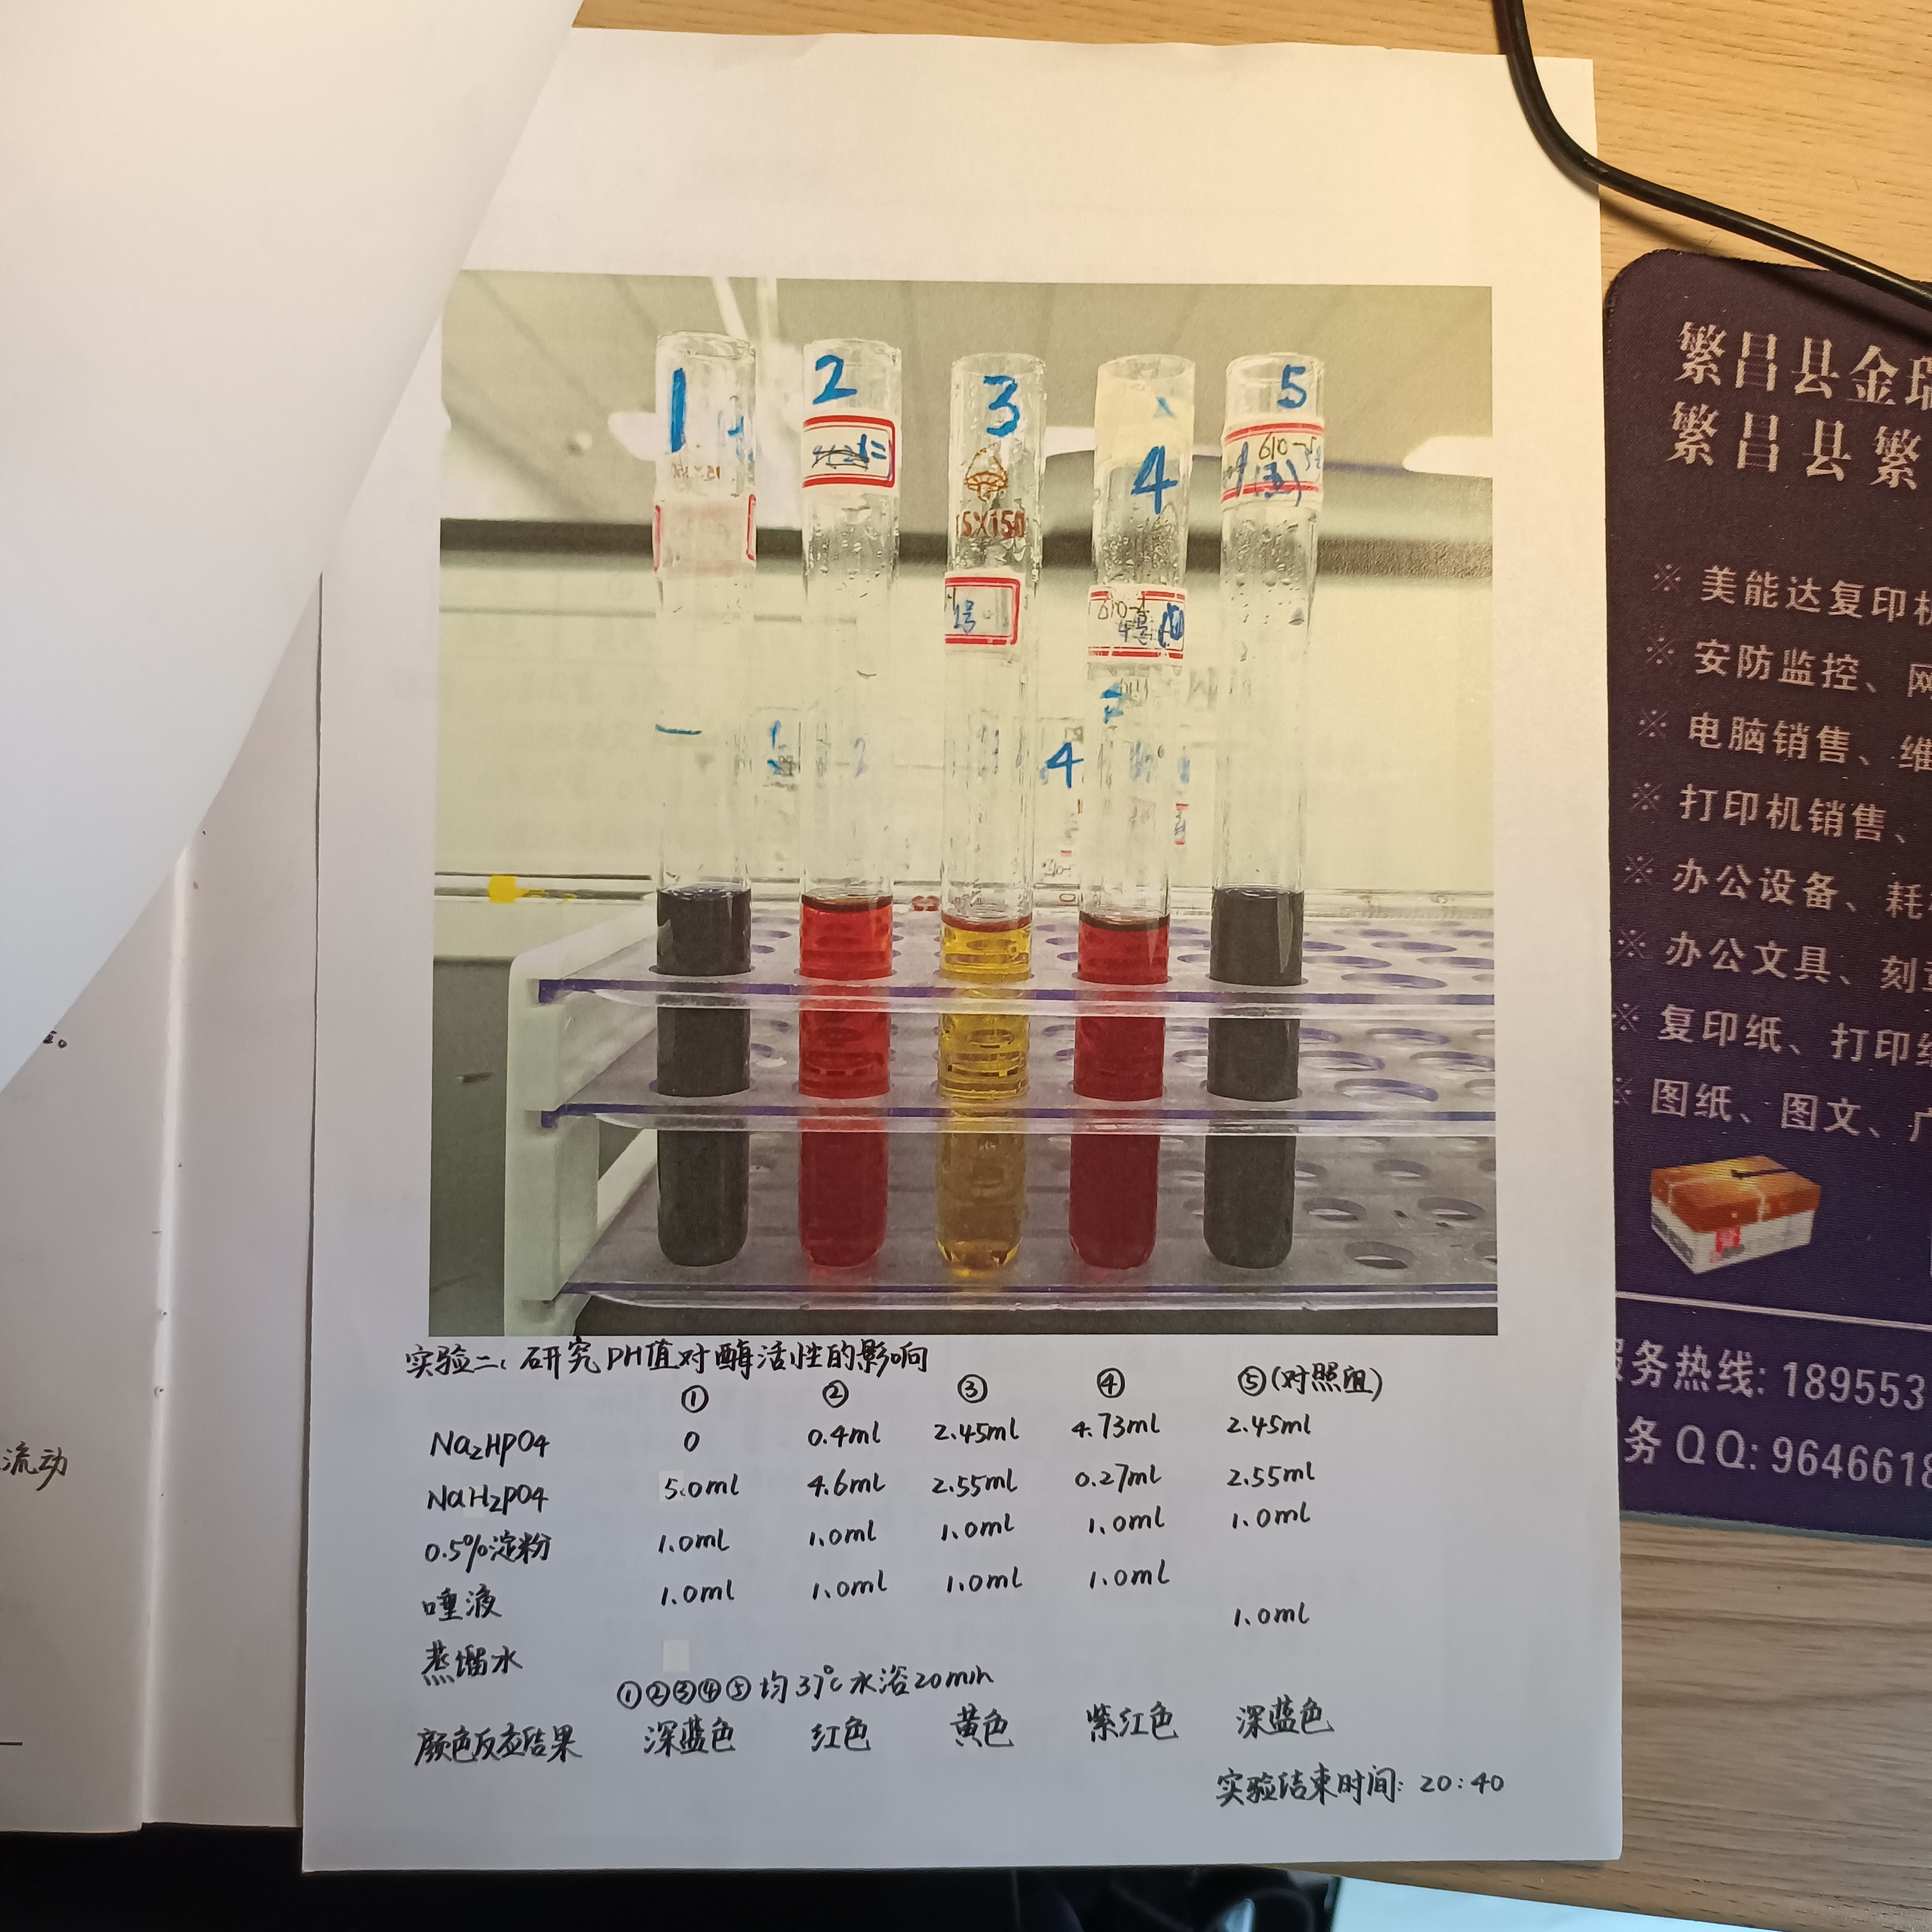 1
2
3
4
5
5X150
1号
610-1
4号
610-5
4
实验二、研究PH值对酶活性的影响
① ② ③ ④ ⑤(对照组)
Na2HPO4 0 0.4ml 2.45ml 4.73ml 2.45ml
NaH2PO4 5.0ml 4.6ml 2.55ml 0.27ml 2.55ml
0.5%淀粉 1.0ml 1.0ml 1.0ml 1.0ml 1.0ml
唾液 1.0ml 1.0ml 1.0ml 1.0ml
蒸馏水 1.0ml
①②③④⑤均37℃水浴20min
颜色反应结果 深蓝色 红色 黄色 紫红色 深蓝色
实验结束时间: 20:40
流动
繁昌县金瑞
繁昌县繁
※ 美能达复印机
※ 安防监控、网
※ 电脑销售、维
※ 打印机销售、
※ 办公设备、耗
※ 办公文具、刻章
※ 复印纸、打印纸
※ 图纸、图文、广
服务热线: 189553
务QQ: 9646618